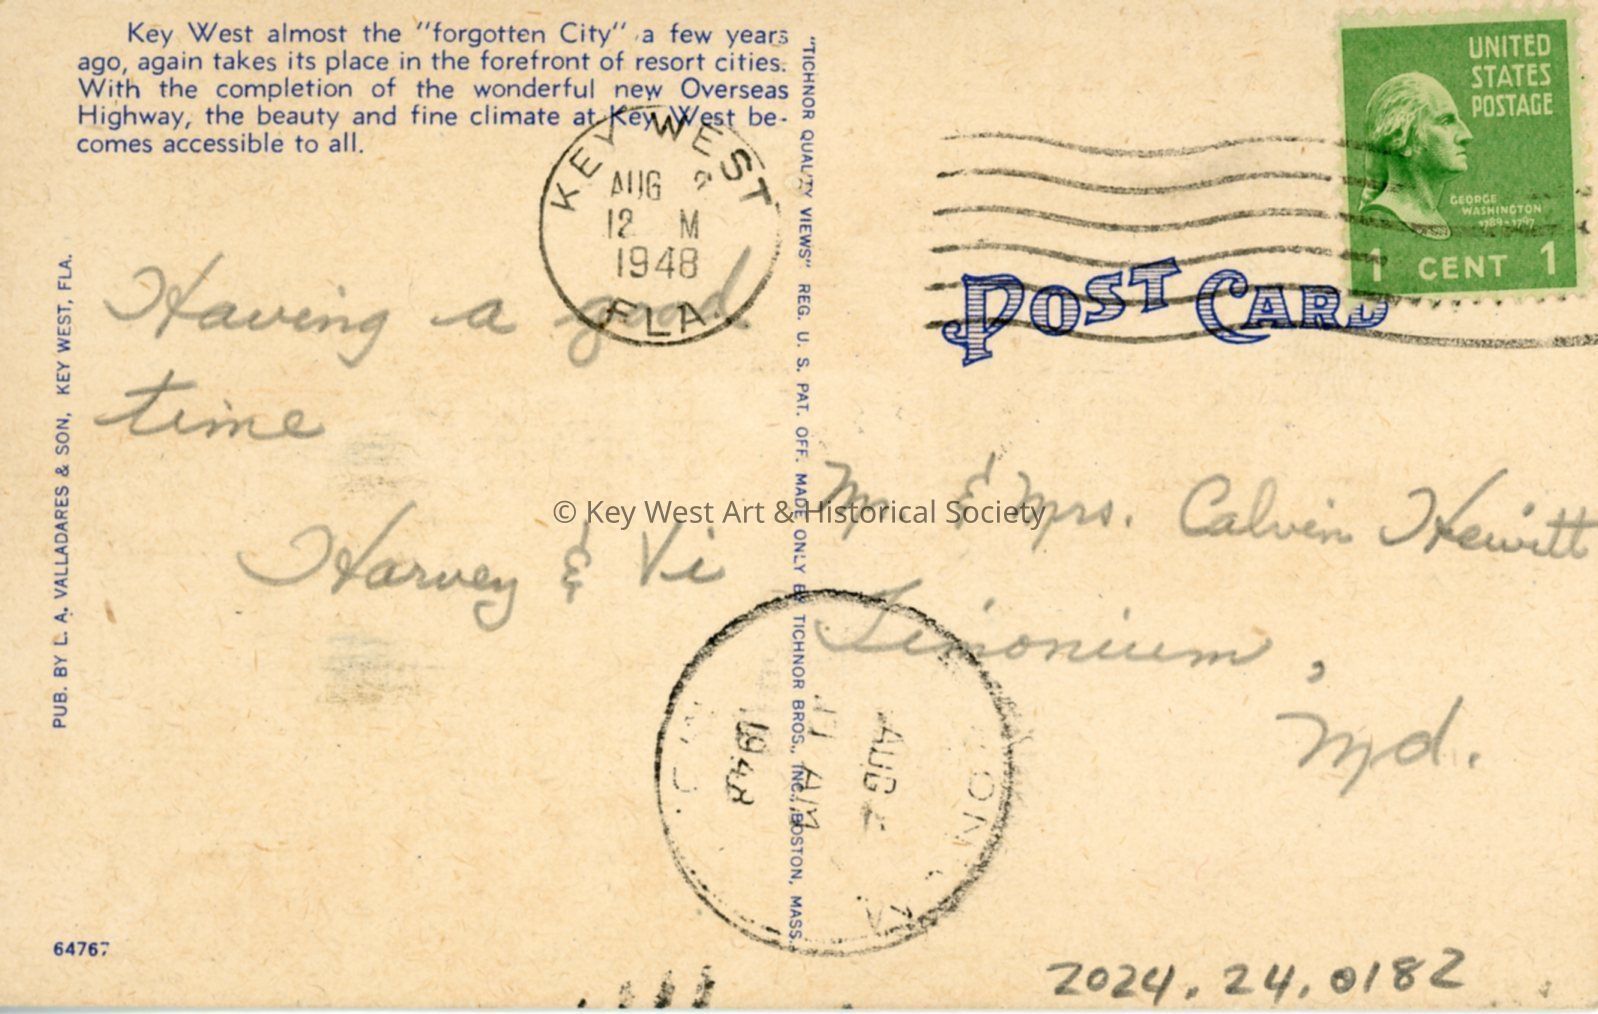 Key West almost the "forgotten City" a few years
ago, again takes its place in the forefront of resort cities.
With the completion of the wonderful new Overseas
Highway, the beauty and fine climate at Key West be-
comes accessible to all.
KEY WEST
AUG
12 M
1948
FLA.
Having a good
time
Harvey & Vi
PUB. BY L. A. VALLADARES & SON, KEY WEST, FLA.
64767
"TICHNOR QUALITY VIEWS" REG. U. S. PAT. OFF. MADE ONLY BY TICHNOR BROS., INC., BOSTON, MASS.
UNITED
STATES
POSTAGE
GEORGE
WASHINGTON
1789-1797
1 CENT 1
POST CARD
Mr. & Mrs. Calvin Hewitt
Timonium,
Md.
© Key West Art & Historical Society
AUG
11 AM
1948
2024.24.0182